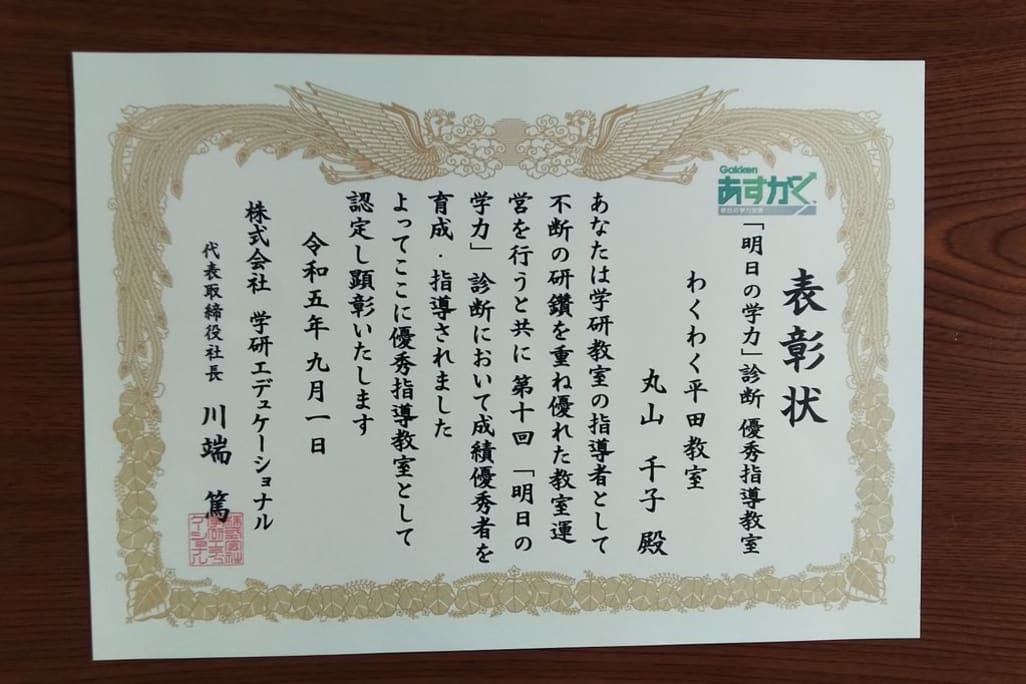 表彰状
Gakken
あすがく
「明日の学力」診断 優秀指導教室
わくわく平田教室
丸山 千子 殿
あなたは学研教室の指導者として
不断の研鑽を重ね優れた教室運
営を行うと共に 第十回 「明日の
学力」 診断において成績優秀者を
育成・指導されました
よってここに優秀指導教室として
認定し顕彰いたします
令和五年 九月一日
株式会社 学研エデュケーショナル
代表取締役社長 川端 篤